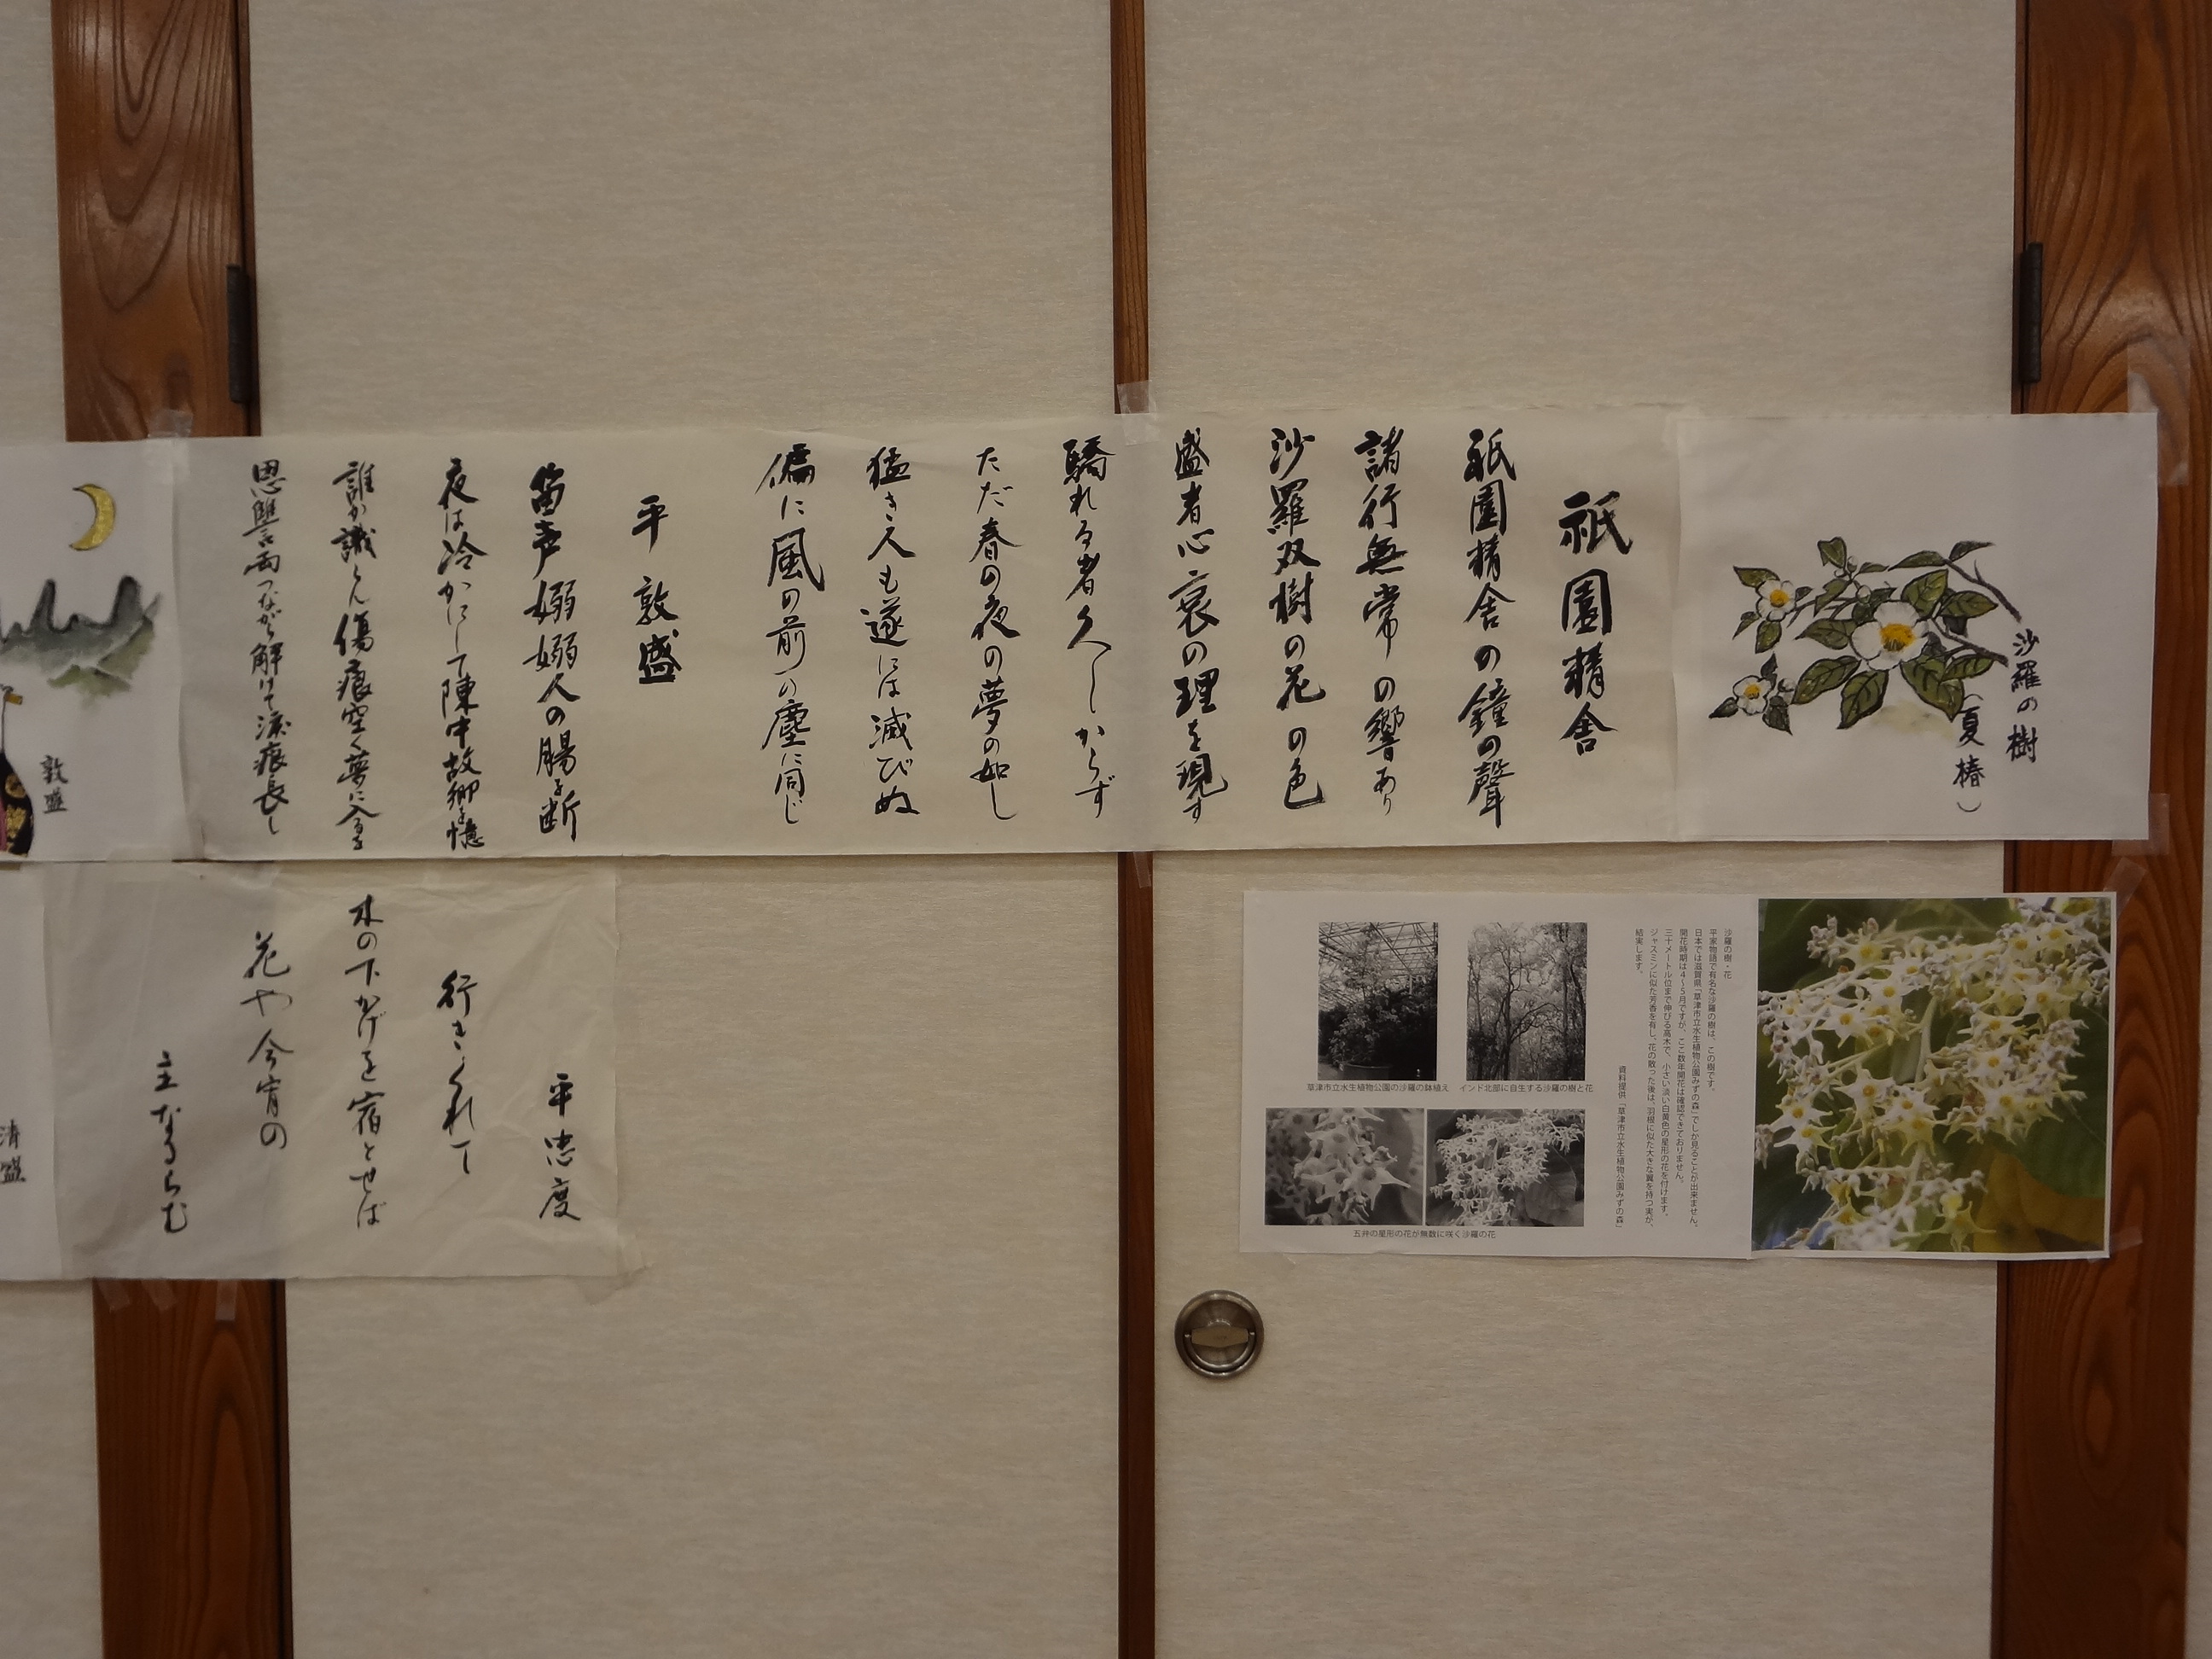 沙羅の樹
(夏椿)
祇園精舎
祇園精舎の鐘の聲
諸行無常の響あり
沙羅双樹の花の色
盛者心衰の理を現す
驕れる者久しからず
ただ春の夜の夢の如し
猛き人も遂には滅びぬ
偏に風の前の塵に同じ
平敦盛
笛声嫋嫋人の腸を断
夜は冷かにして陳中故郷を憶
誰か識らん傷痕空く夢に入るを
恩讐両つながら解けて涙痕長し
敦盛
沙羅の樹・花
平家物語で有名な沙羅の樹は、この樹です。
日本では滋賀県「草津市立水生植物公園みずの森」でしか見ることが出来ません。
開花時期は4~5月ですが、ここ数年開花は確認できておりません。
三十メートル位まで伸びる高木で、小さい淡い白黄色の星形の花を付けます。
ジャスミンに似た芳香を有し、花の散った後は、羽根に似た大きな翼を持つ実が、
結実します。
資料提供「草津市立水生植物公園みずの森」
インド北部に自生する沙羅の樹と花
草津市立水生植物公園の沙羅の鉢植え
五弁の星形の花が無数に咲く沙羅の花
平忠度
行きくれて
木の下かげを宿とせば
花や今宵の
主なるらむ
清盛